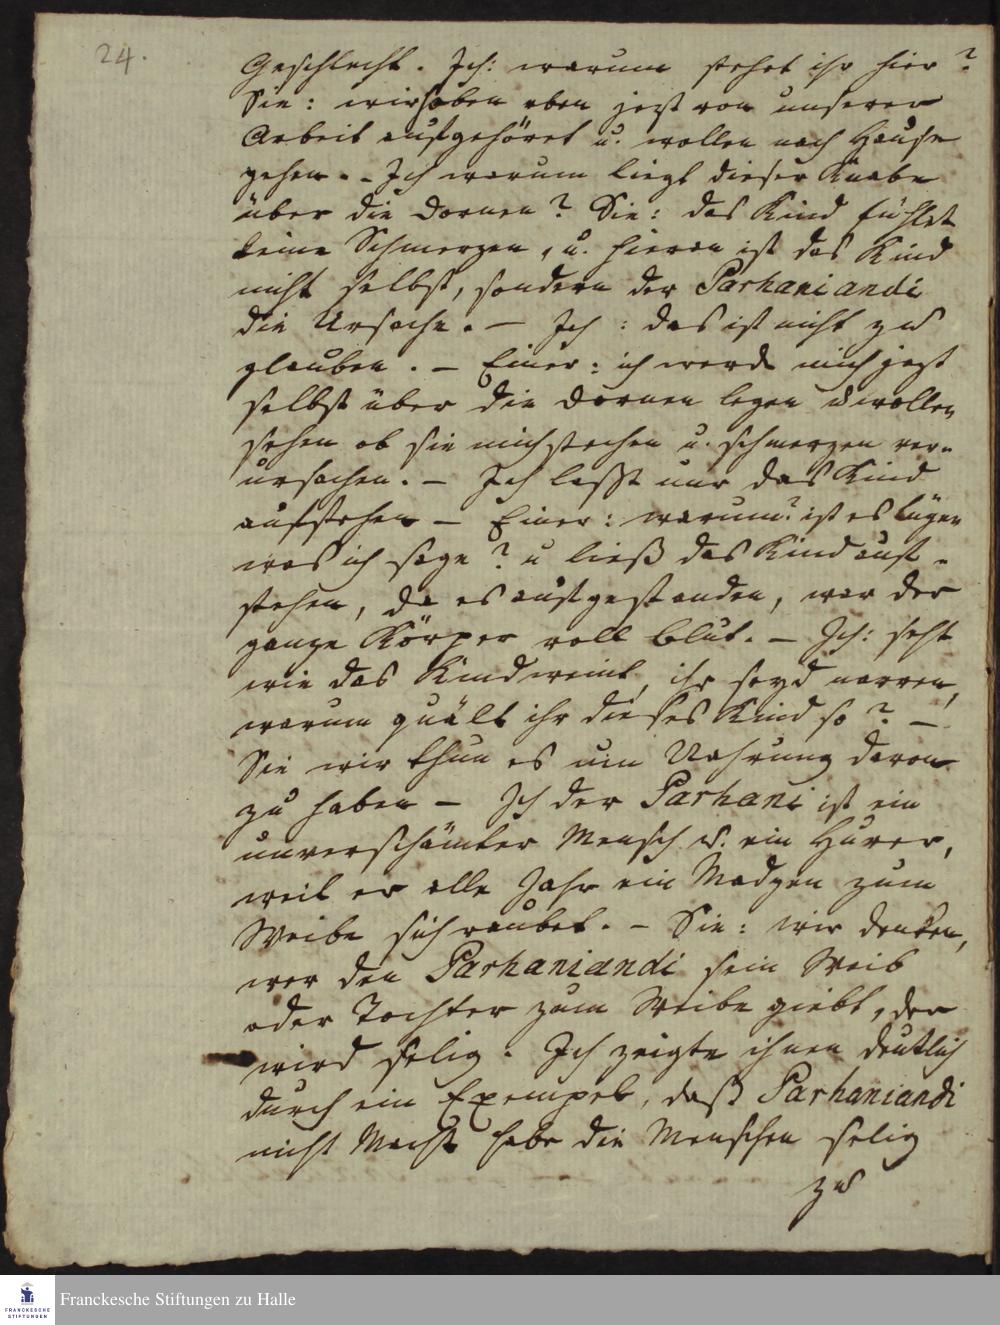 24.
Geschlecht. Ich: warum stehet ihr hier?
Sie: wir haben eben jezt von unserer
Arbeit aufgehöret u. wollen nach Hause
gehen. - Ich warum liegt dieser Knabe
über die Dornen? Sie: das Kind fühlet
keine Schmerzen, u. hieran ist das Kind
nicht selbst, sondern der Parhaniandi
die Ursache. — Ich: das ist nicht zu
glauben. — Einer: ich werde mich jezt
selbst über die Dornen legen u wollen
sehen ob sie mich stechen u. schmerzen ver-
ursachen. — Ich lasst nur das Kind
aufstehen — Einer: warum? ist es Lügen
was ich sage? u ließ das Kind auf-
stehen, da es aufgestanden, war der
ganze Körper voll Blut. — Ich: seht
wie das Kind weint, ihr seyd narren,
warum quält ihr dieses Kind so? —
Sie wir thun es um Nahrung davon
zu haben — Ich der Parhani ist ein
unverschämter Mensch u. ein Hurer,
weil er alle Jahr ein Madgen zum
Weibe sich raubet. - Sie: wir denken,
wer den Parhaniandi sein Weib
oder Tochter zum Weibe giebt, der
wird selig. Ich zeigte ihnen deutlich
durch ein Exempel, daß Parhaniandi
nicht Macht habe die Menschen selig
zu
FRANCKESCHE
STIFTUNGEN
Franckesche Stiftungen zu Halle